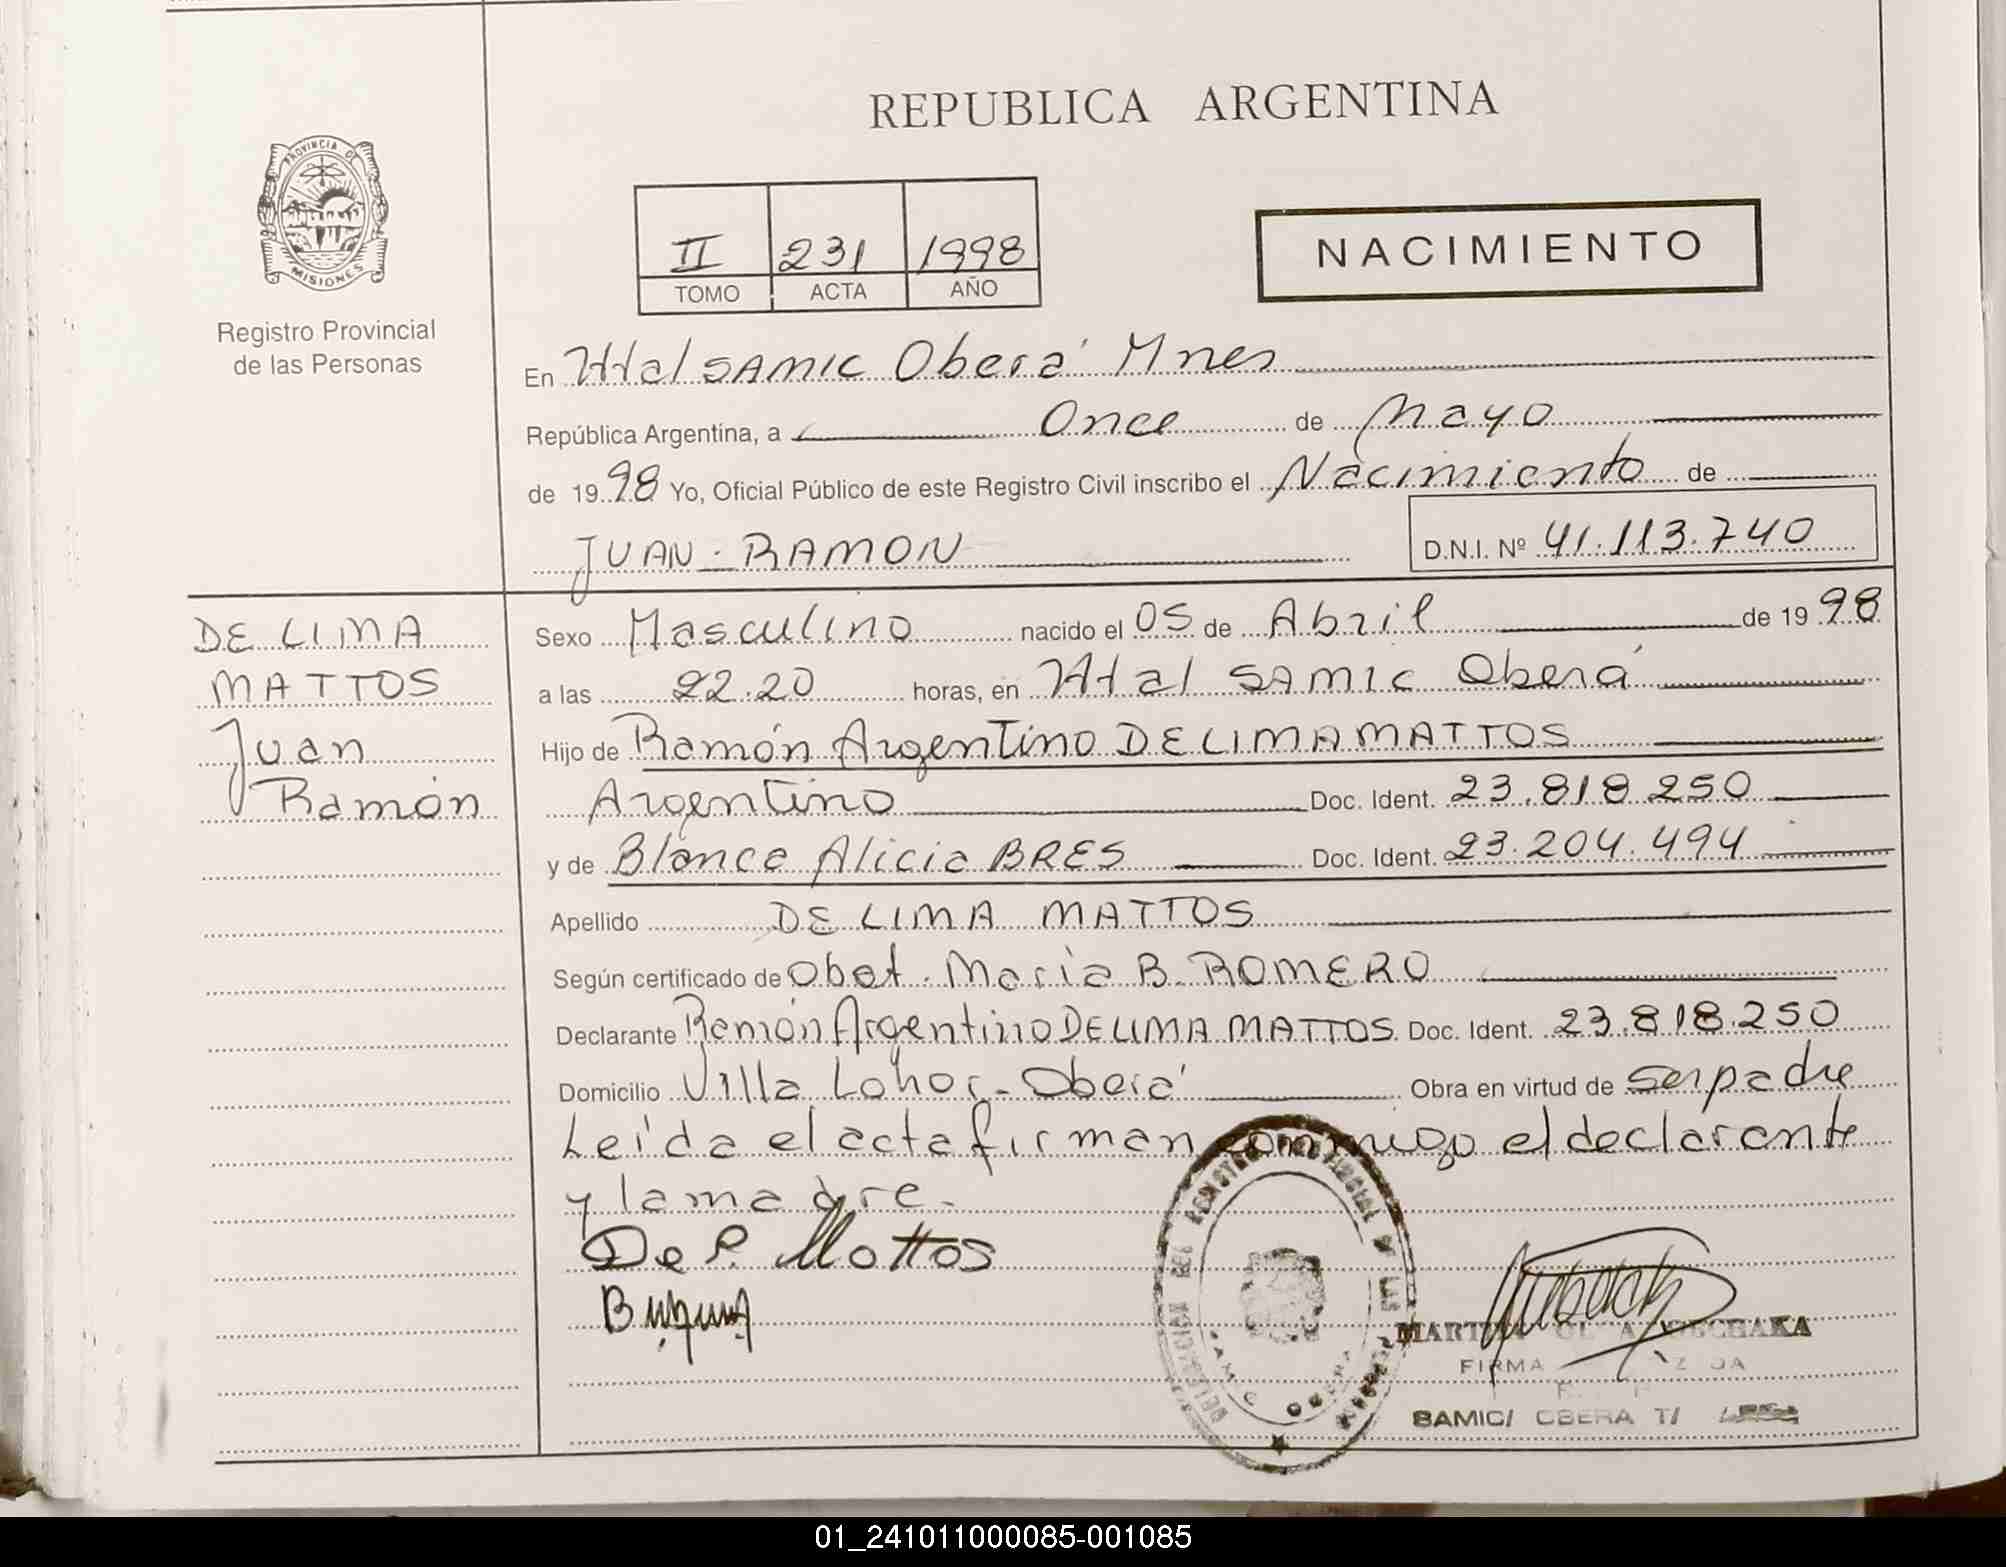 REPUBLICA ARGENTINA
PROVINCIA DE
MISIONES
Registro Provincial
de las Personas
II 231 1998
TOMO ACTA AÑO
NACIMIENTO
En Htal SAMIC Oberá Mnes
República Argentina, a Once de Mayo
de 1998 Yo, Oficial Público de este Registro Civil inscribo el Nacimiento de
JUAN RAMON D.N.I. Nº 41.113.740
DE LIMA
MATTOS
Juan
Ramón
Sexo Masculino nacido el 05 de Abril de 1998
a las 22.20 horas, en Htal SAMIC Oberá
Hijo de Ramón Argentino DE LIMA MATTOS
Argentino Doc. Ident. 23.818.250
y de Blanca Alicia BRES Doc. Ident. 23.204.494
Apellido DE LIMA MATTOS
Según certificado de Obst. María B. ROMERO
Declarante Ramón Argentino DE LIMA MATTOS Doc. Ident. 23.818.250
Domicilio Villa Oberá Obra en virtud de ser padre
Leída el acta firman conmigo el declarante
y la madre.
De L. Mattos
FIRMA
SAMIC/ OBERA
01_241011000085-001085